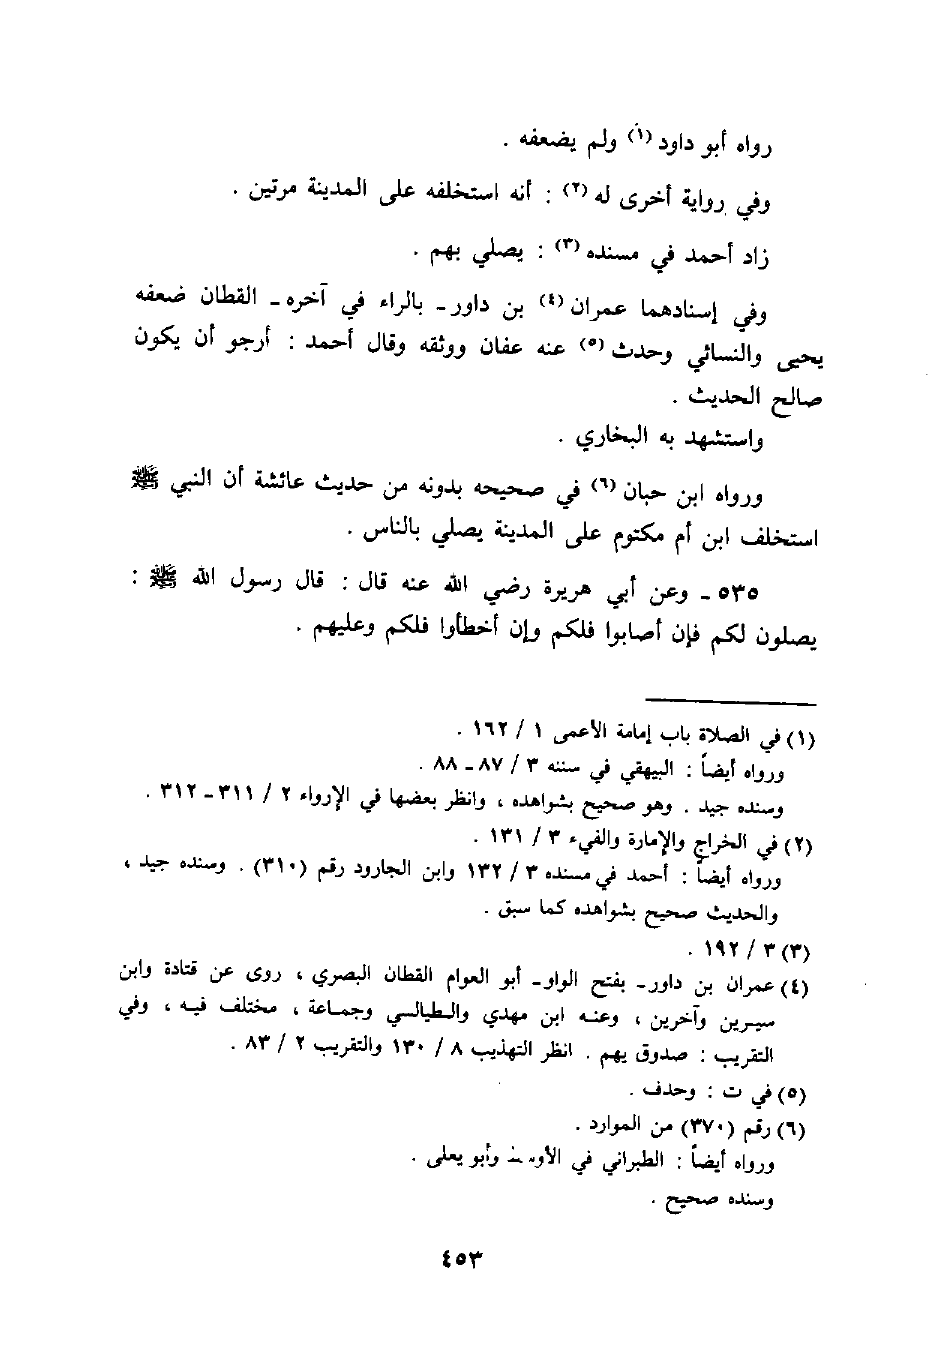 رواه أبو داود (١) ولم يضعفه .
وفي رواية أخرى له (٢) : أنه استخلفه على المدينة مرتين .
زاد أحمد في مسنده (٣) : يصلي بهم .
وفي إسنادهما عمران (٤) بن داور ـ بالراء في آخره ـ القطان ضعفه
يحيى والنسائي وحدث (٥) عنه عفان ووثقه وقال أحمد : أرجو أن يكون
صالح الحديث .
واستشهد به البخاري .
ورواه ابن حبان (٦) في صحيحه بدونه من حديث عائشة أن النبي ﷺ
استخلف ابن أم مكتوم على المدينة يصلي بالناس .
٥٣٥ ـ وعن أبي هريرة رضي الله عنه قال : قال رسول الله ﷺ :
يصلون لكم فإن أصابوا فلكم وإن أخطأوا فلكم وعليهم .
(١) في الصلاة باب إمامة الأعمى ١ / ١٦٢ .
ورواه أيضاً : البيهقي في سننه ٣ / ٨٧ ـ ٨٨ .
وسنده جيد . وهو صحيح بشواهده ، وانظر بعضها في الإرواء ٢ / ٣١١ ـ ٣١٢ .
(٢) في الخراج والإمارة والفيء ٣ / ١٣١ .
ورواه أيضاً : أحمد في مسنده ٣ / ١٣٢ وابن الجارود رقم (٣١٠) . وسنده جيد ،
والحديث صحيح بشواهده كما سبق .
(٣) ٣ / ١٩٢ .
(٤) عمران بن داور ـ بفتح الواو ـ أبو العوام القطان البصري ، روى عن قتادة وابن
سيرين وآخرين ، وعنه ابن مهدي والطيالسي وجماعة ، مختلف فيه ، وفي
التقريب : صدوق يهم . انظر التهذيب ٨ / ١٣٠ والتقريب ٢ / ٨٣ .
(٥) في ت : وحدف .
(٦) رقم (٣٧٠) من الموارد .
ورواه أيضاً : الطبراني في الأوسط وأبو يعلى .
وسنده صحيح .
٤٥٣